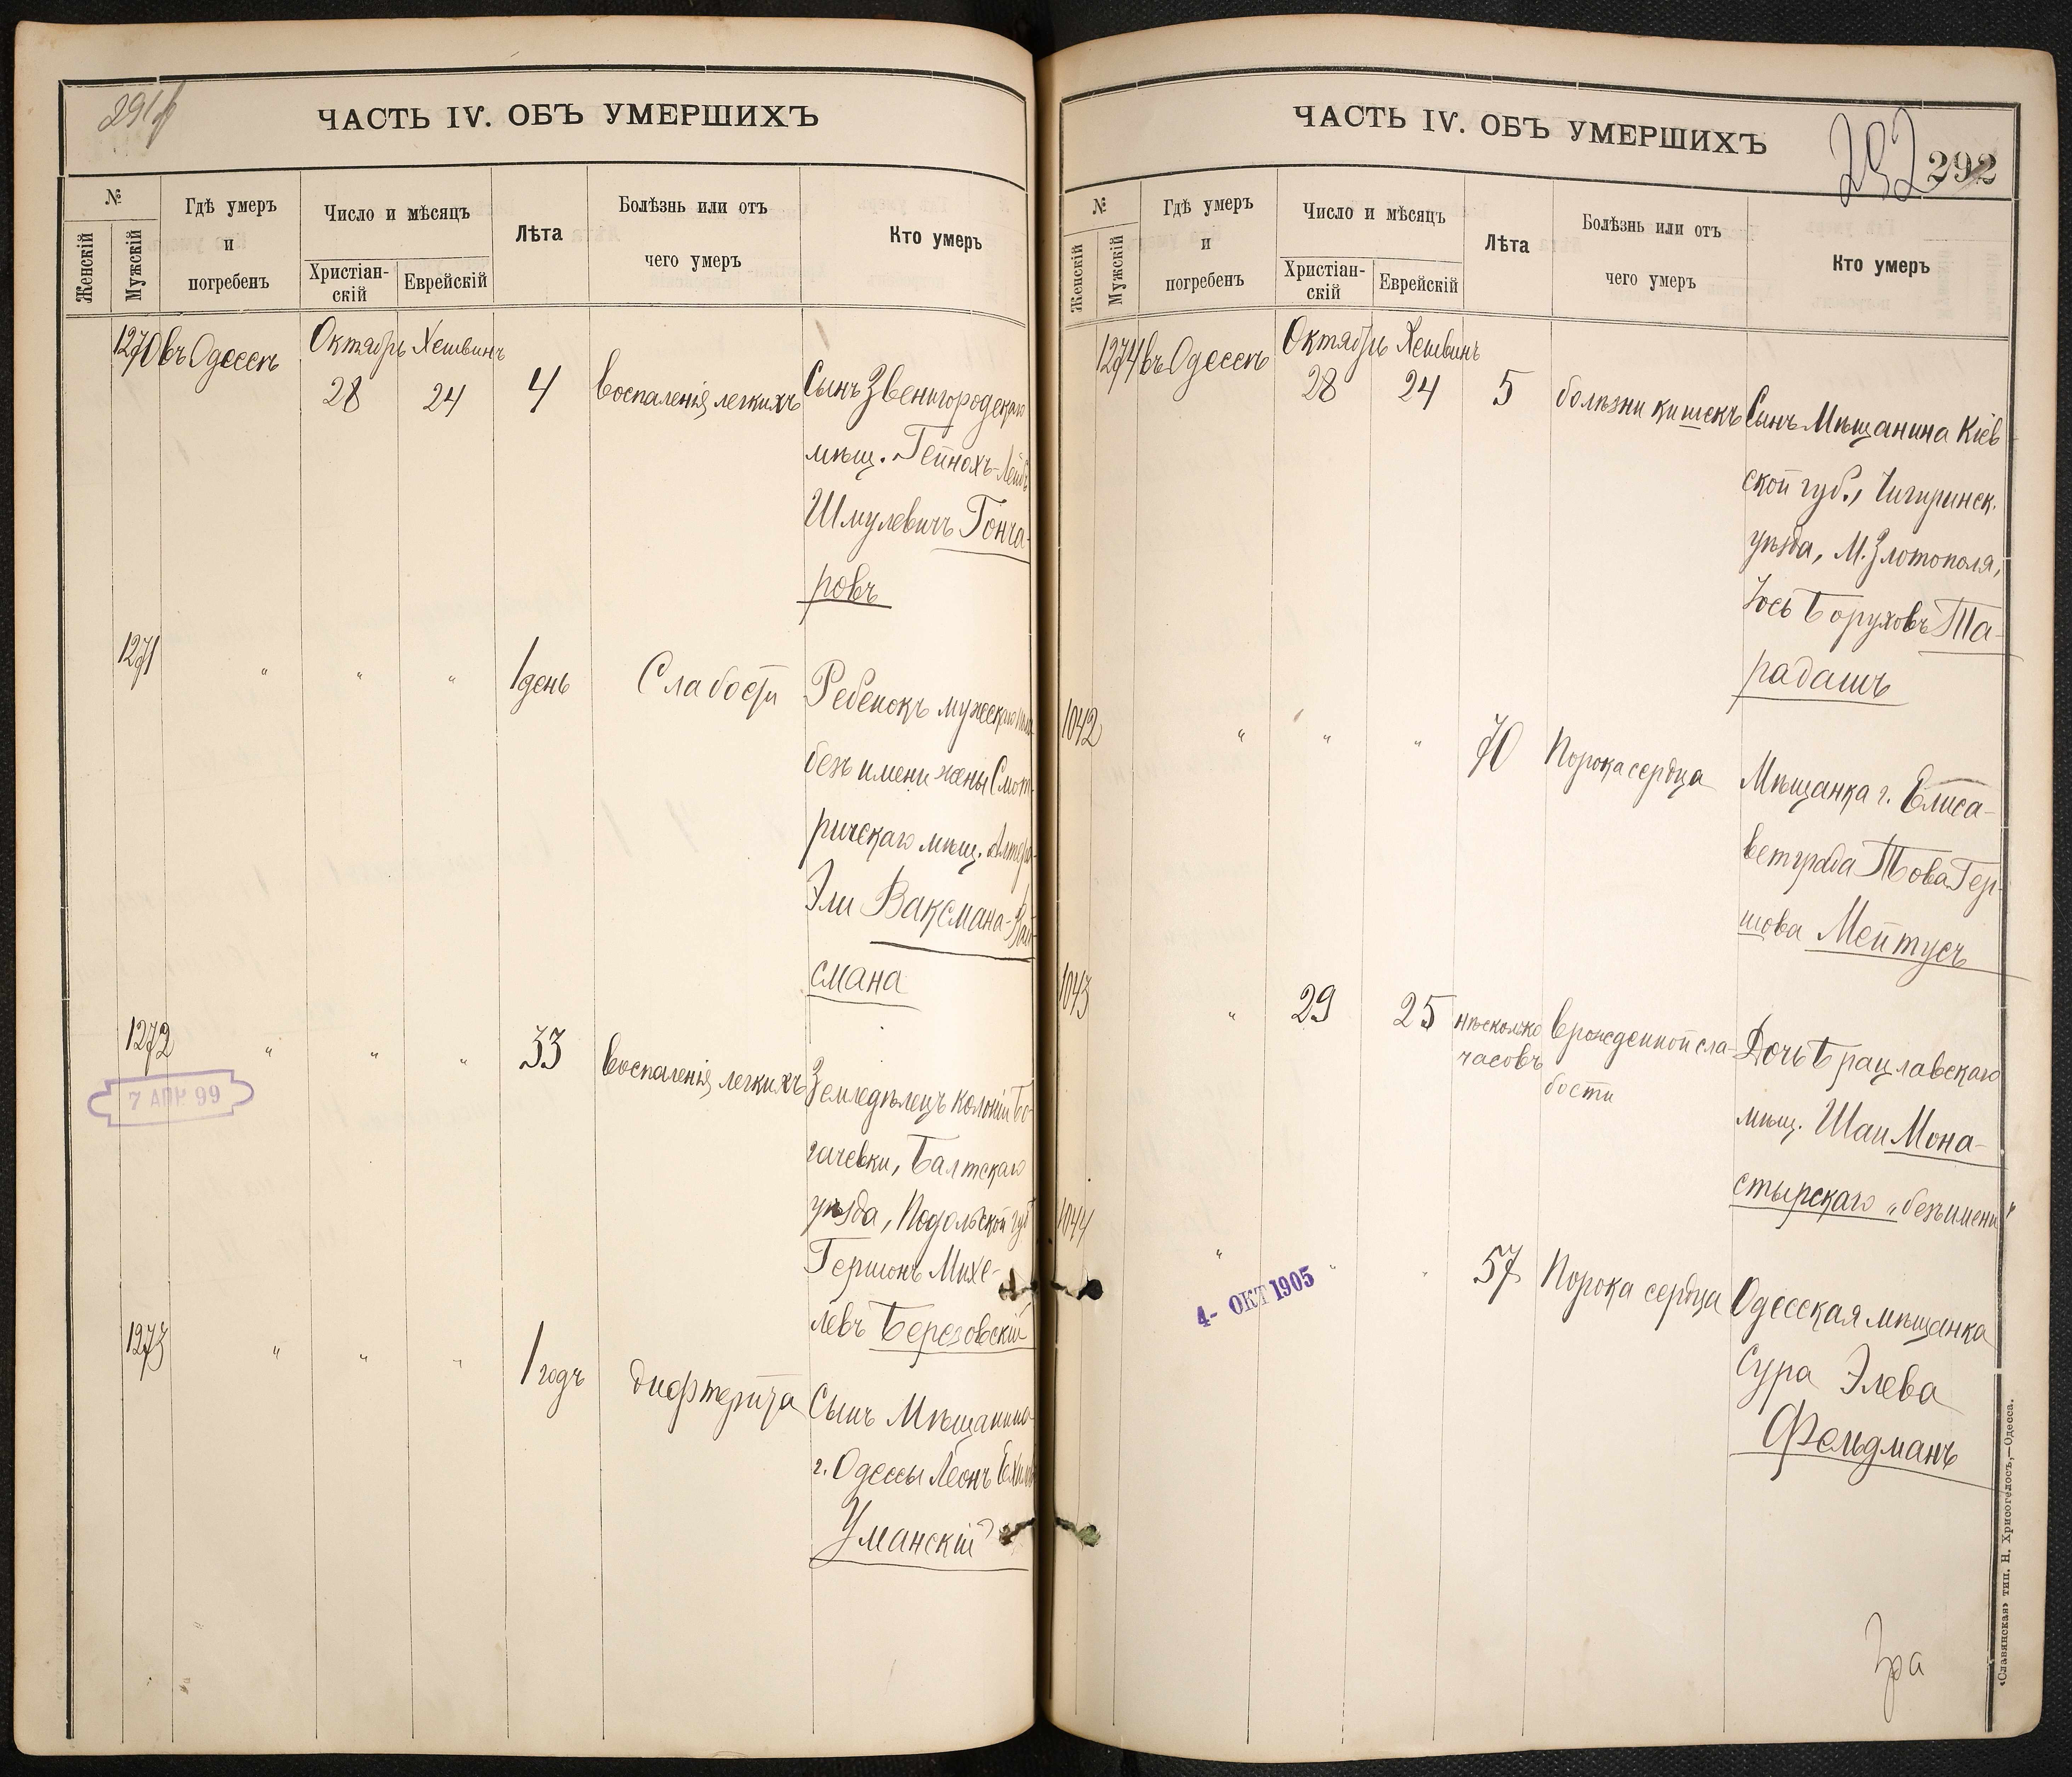 291
ЧАСТЬ IV. ОБЪ УМЕРШИХЪ
№
Женскій
Мужскій
Гдѣ умеръ
и
погребенъ
Число и мѣсяцъ
Христіан-
скій
Еврейскій
Лѣта
Болѣзнь или отъ
чего умеръ
Кто умеръ
1270 въ Одессѣ Октябрь Хешвинъ
28 24 4 Воспаленія легкихъ Сынъ Звенигородскаго
мѣщ. Гейнохъ-Лейбъ
Шмулевичъ Гонча-
ровъ
1271 " " " 1 день Слабости Ребенокъ мужескаго
безъ имени жены Смот-
ричскаго мѣщ.
Эли Ваксмана-Вай-
смана
1272 " " " 33 Воспаленія легкихъ Земледѣлецъ колоніи Бо-
гачевки, Балтскаго
уѣзда, Подольской губ
Гершонъ Михе-
левъ Березовскій
7 АПР. 99
1273 " " " 1 годъ дифтерита Сынъ Мѣщанина
г. Одессы Леонъ
Уманскій
ЧАСТЬ IV. ОБЪ УМЕРШИХЪ
292 292
№
Женскій
Мужскій
Гдѣ умеръ
и
погребенъ
Число и мѣсяцъ
Христіан-
скій
Еврейскій
Лѣта
Болѣзнь или отъ
чего умеръ
Кто умеръ
1274 въ Одессѣ Октябрь Хешвинъ
28 24 5 болѣзни кишекъ Сынъ Мѣщанина Кіев
ской губ., Чигиринск.
уѣзда, М. Злотополя,
Іось Боруховъ Та-
радашъ
1042 " " " 70 Порока сердца Мѣщанка г. Елиса-
ветграда Това Гер-
шова Мейтусъ
1043 " 29 25 нѣсколько часовъ врожденной сла-
бости Дочь Брацлавскаго
мѣщ. Шаи Мона-
стырскаго „безъ имени"
1044 " " " 57 Порока сердца Одесская мѣщанка
Сура Элева
Фельдманъ
4- ОКТ 1905
«Славянская» тип. Н. Хрисогелосъ,—Одесса.